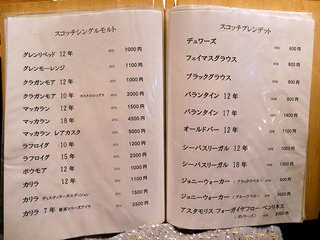 スコッチシングルモルト
グレンリベッド 12年 1000円
グレンモーレンジ 1100円
クラガンモア 12年 1000円
クラガンモア 10年 カスクストレングス 2000円
マッカラン 12年 1500円
マッカラン 18年 4500円
マッカラン レアカスク 5000円
ラフロイグ 10年 1200円
ラフロイグ 15年 2300円
ボウモア 12年 1000円
カリラ 12年 1100円
カリラ ディスティラーズエディション 1500円
カリラ 7年 2500円
スコッチブレンデット
デュワーズ 600円
フェイマスグラウス 800円
ブラックグラウス 800円
バランタイン 12年 900円
バランタイン 17年 1400円
オールドパー 12年 1100円
シーバスリーガル 12年
シーバスリーガル 18年 1300円
ジョニーウォーカー
ジョニーウォーカー
アスタモリス フォーガイヤフロー ベンリネス